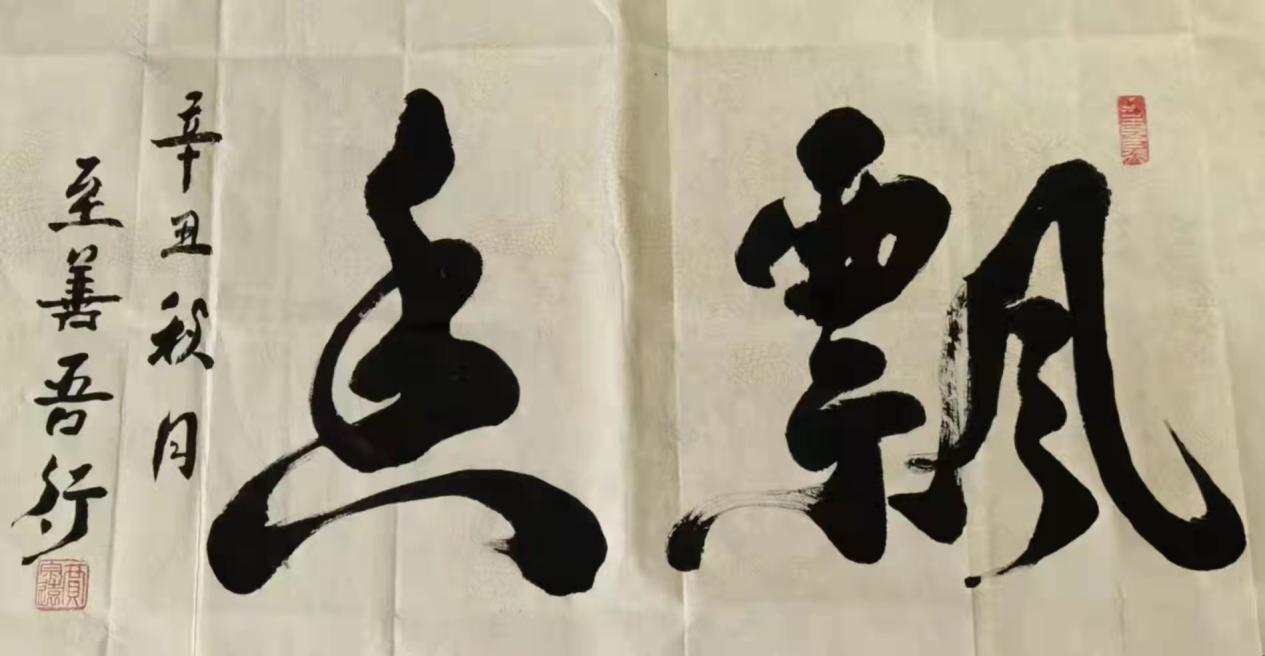 飄逸
辛丑秋月
至善吾行